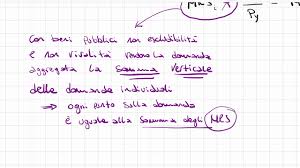 MRS, x
Py
Con beni pubblici non escludibilità
e non rivalità vediamo la domanda
aggregata la somma verticale
delle domande individuali
→ ogni punto sulla domanda
è uguale alla somma degli MRS